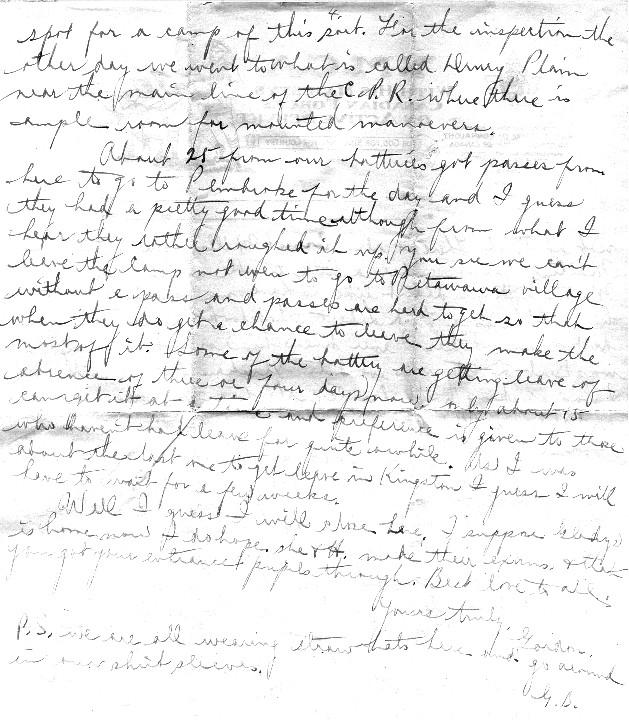 4.
spot for a camp of this sort. For the inspection the
other day we went to what is called Plain
near the main line of the C.P.R. where there is
ample room for mounted manoevers.
About 25 from our batteries got passes from
here to go to Pembroke for the day and I guess
they had a pretty good time although from what I
hear they rather roughed it up. You see we can't
leave the camp not even to go to Petawawa village
without a pass and passes are hard to get so that
when they do get a chance to leave they make the
most of it. Some of the battery are getting leave of
absence of three or four days now only about 15
can get it at a time and preference is given to those
who haven't had leave for quite awhile. As I was
about the last one to get leave in Kingston I guess I will
have to wait for a few weeks.
Well I guess I will close here. I suppose Gladys
is home now I do hope she & H. make their exams. & that
you got your entrance pupils through. Best love to all.
Yours truly, Gordon.
P.S. we are all wearing straw hats here and go around
in our shirt sleeves.
G.B.